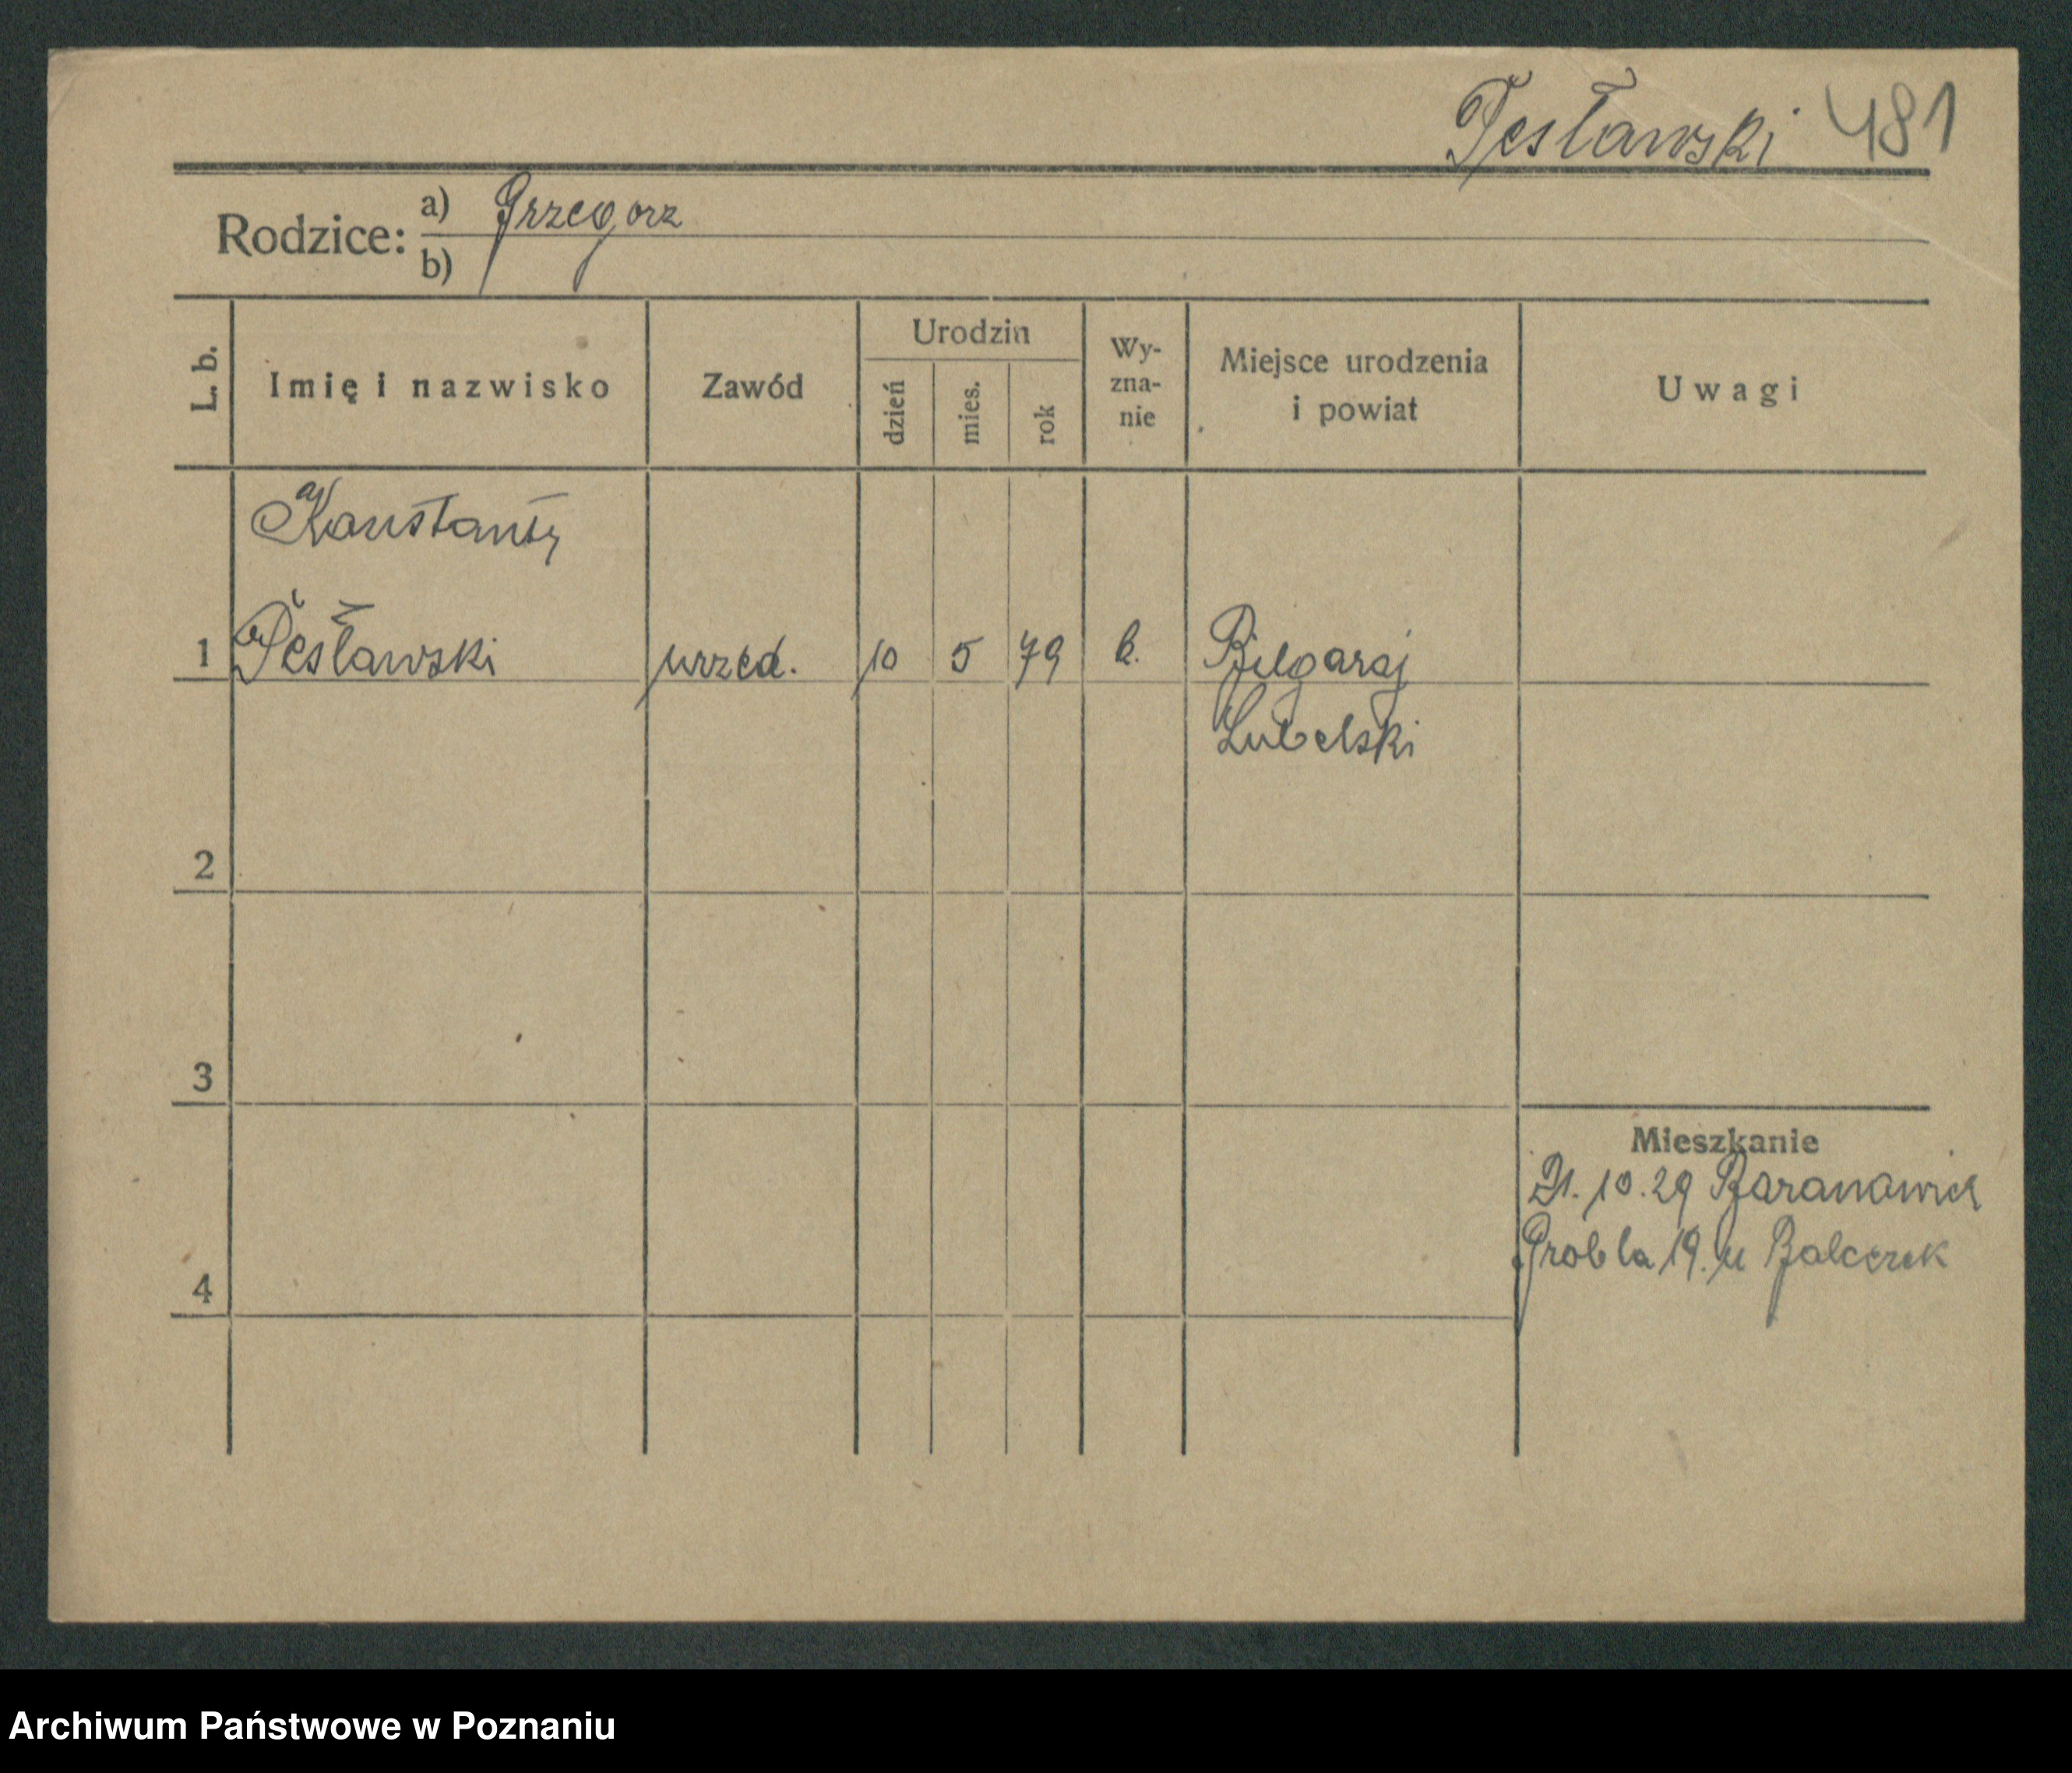 Tesławski 481
Rodzice: a) Grzegorz
b)
L. b.
Imię i nazwisko
Zawód
Urodzin
dzień
mies.
rok
Wy-
zna-
nie
Miejsce urodzenia
i powiat
Uwagi
Konstanty
1 Tesławski urzęd. 10 5 79 k. Biłgaraj
Lubelski
2
3
4
Mieszkanie
21. 10. 29 Baranowicz
Grobla 19. u Balcerek
Archiwum Państwowe w Poznaniu